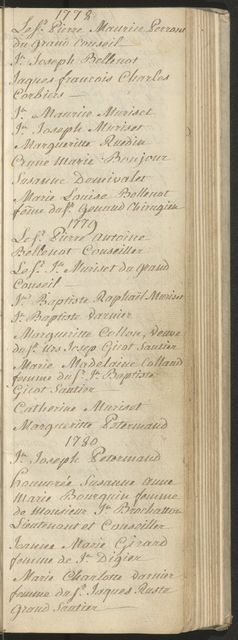 1778
Le Sr. Pierre Maurice Perrons
du Grand Conseil
Jn. Joseph Bellenot
Jaques francois Charles
Corbier
Jn. Maurice Muriset
Jn. Joseph Muriset
Margueritte Ruedin
Anne Marie Bonjour
Susanne Donivalet
Marie Louise Bellenot
feme du Sr. Chirugien
1779
Le Sr. Pierre Antoine
Bellenot Conseiller
Le Sr. Jn. Muriset du Grand
Conseil
Jn. Baptiste Raphaël Muriset
Jn. Baptiste Varnier
Margueritte Collon, veuve
du Sr. Urs Josep Gicot Sautier
Marie Madelaine Colland
femme du Sr. Jn. Baptiste
Gicot Sautier
Catherine Muriset
Margueritte Petermand
1780
Jn. Joseph Petermand
honnorée Susanne Anne
Marie Bourguin femme
de Monsieur Jn. Brochatton
Lieutenant et Conseiller
Jeanne Marie Girard
femme de Jn. Digier
Marie Charlotte Varnier
femme du Sr. Jaques Rusta
Grand Sautier